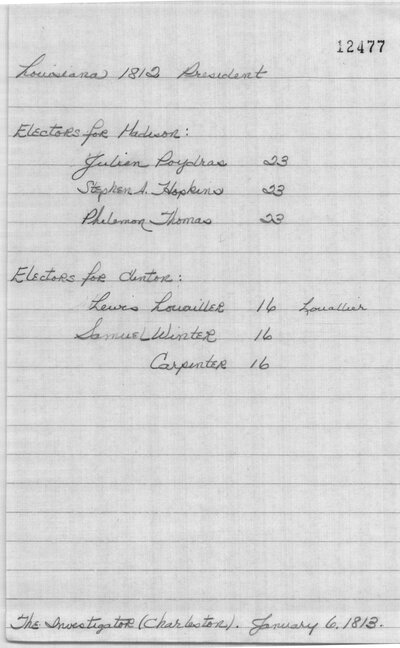 12477
Louisiana 1812 President
Electors for Madison:
Julien Poydras 23
Stephen A. Hopkins 23
Philemon Thomas 23
Electors for Clinton:
Lewis Louailler 16 Louallier
Samuel Winter 16
Carpenter 16
The Investigator (Charleston). January 6, 1813.